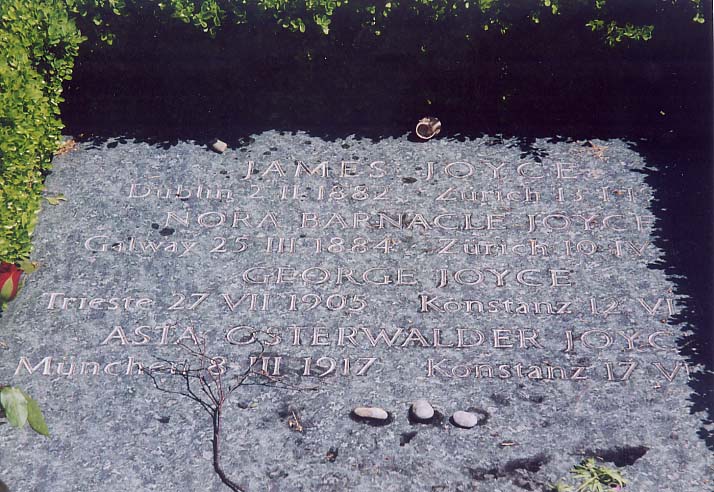 JAMES JOYCE
Dublin 2 II 1882 Zürich 13 I
NORA BARNACLE JOYCE
Galway 25 III 1884 Zürich 10 IV
GEORGE JOYCE
Trieste 27 VII 1905 Konstanz 12 VI
ASTA OSTERWALDER JOYC
München 8 III 1917 Konstanz 17 VI